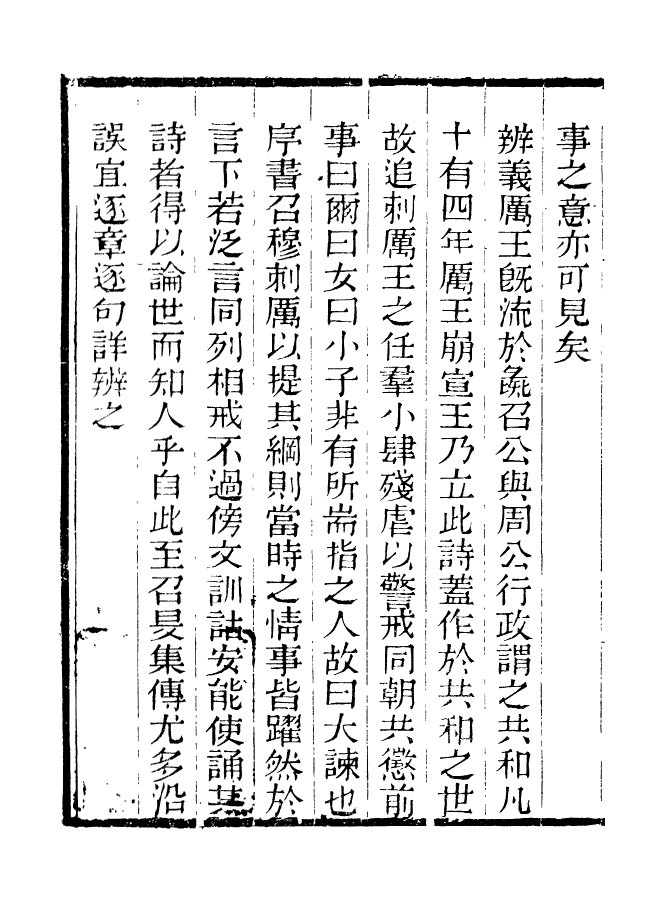 事之意亦可見矣
辨義厲王旣流於彘召公與周公行政謂之共和凡
十有四年厲王崩宣王乃立此詩蓋作於共和之世
故追刺厲王之任羣小肆殘虐以警戒同朝共懲前
事曰爾曰女曰小子非有所耑指之人故曰大諫也
序書召穆刺厲以提其綱則當時之情事皆躍然於
言下若泛言同列相戒不過傍文訓詁安能使誦其
詩者得以論世而知人乎自此至召旻集傳尤多沿
誤宜逐章逐句詳辨之